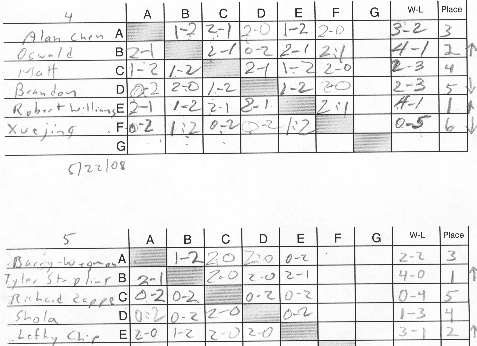 4 A B C D E F G W-L Place
Alan Chen A 1-2 2-1 2-0 1-2 2-0 3-2 3
Oswald B 2-1 2-1 0-2 2-1 2-1 4-1 2 ↑
Matt C 1-2 1-2 2-1 1-2 2-0 2-3 4
Brandon D 0-2 2-0 1-2 1-2 2-0 2-3 5 ↓
Robert Williams E 2-1 1-2 2-1 2-1 2-1 4-1 1 ↑
Xuejing F 0-2 1-2 0-2 0-2 1-2 0-5 6 ↓
G
5/22/08
5 A B C D E F G W-L Place
Barry A 1-2 2-0 2-0 0-2 2-2 3
Tyler B 2-1 2-0 2-0 2-1 4-0 1 ↑
Richard C 0-2 0-2 0-2 0-2 0-4 5
Shola D 0-2 0-2 2-0 0-2 1-3 4
Lefty Chip E 2-0 1-2 2-0 2-0 3-1 2 ↑